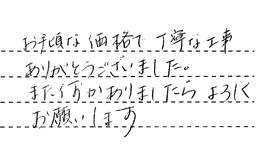 お手頃な価格で丁寧な工事
ありがとうございました。
また何かありましたらよろしく
お願いします